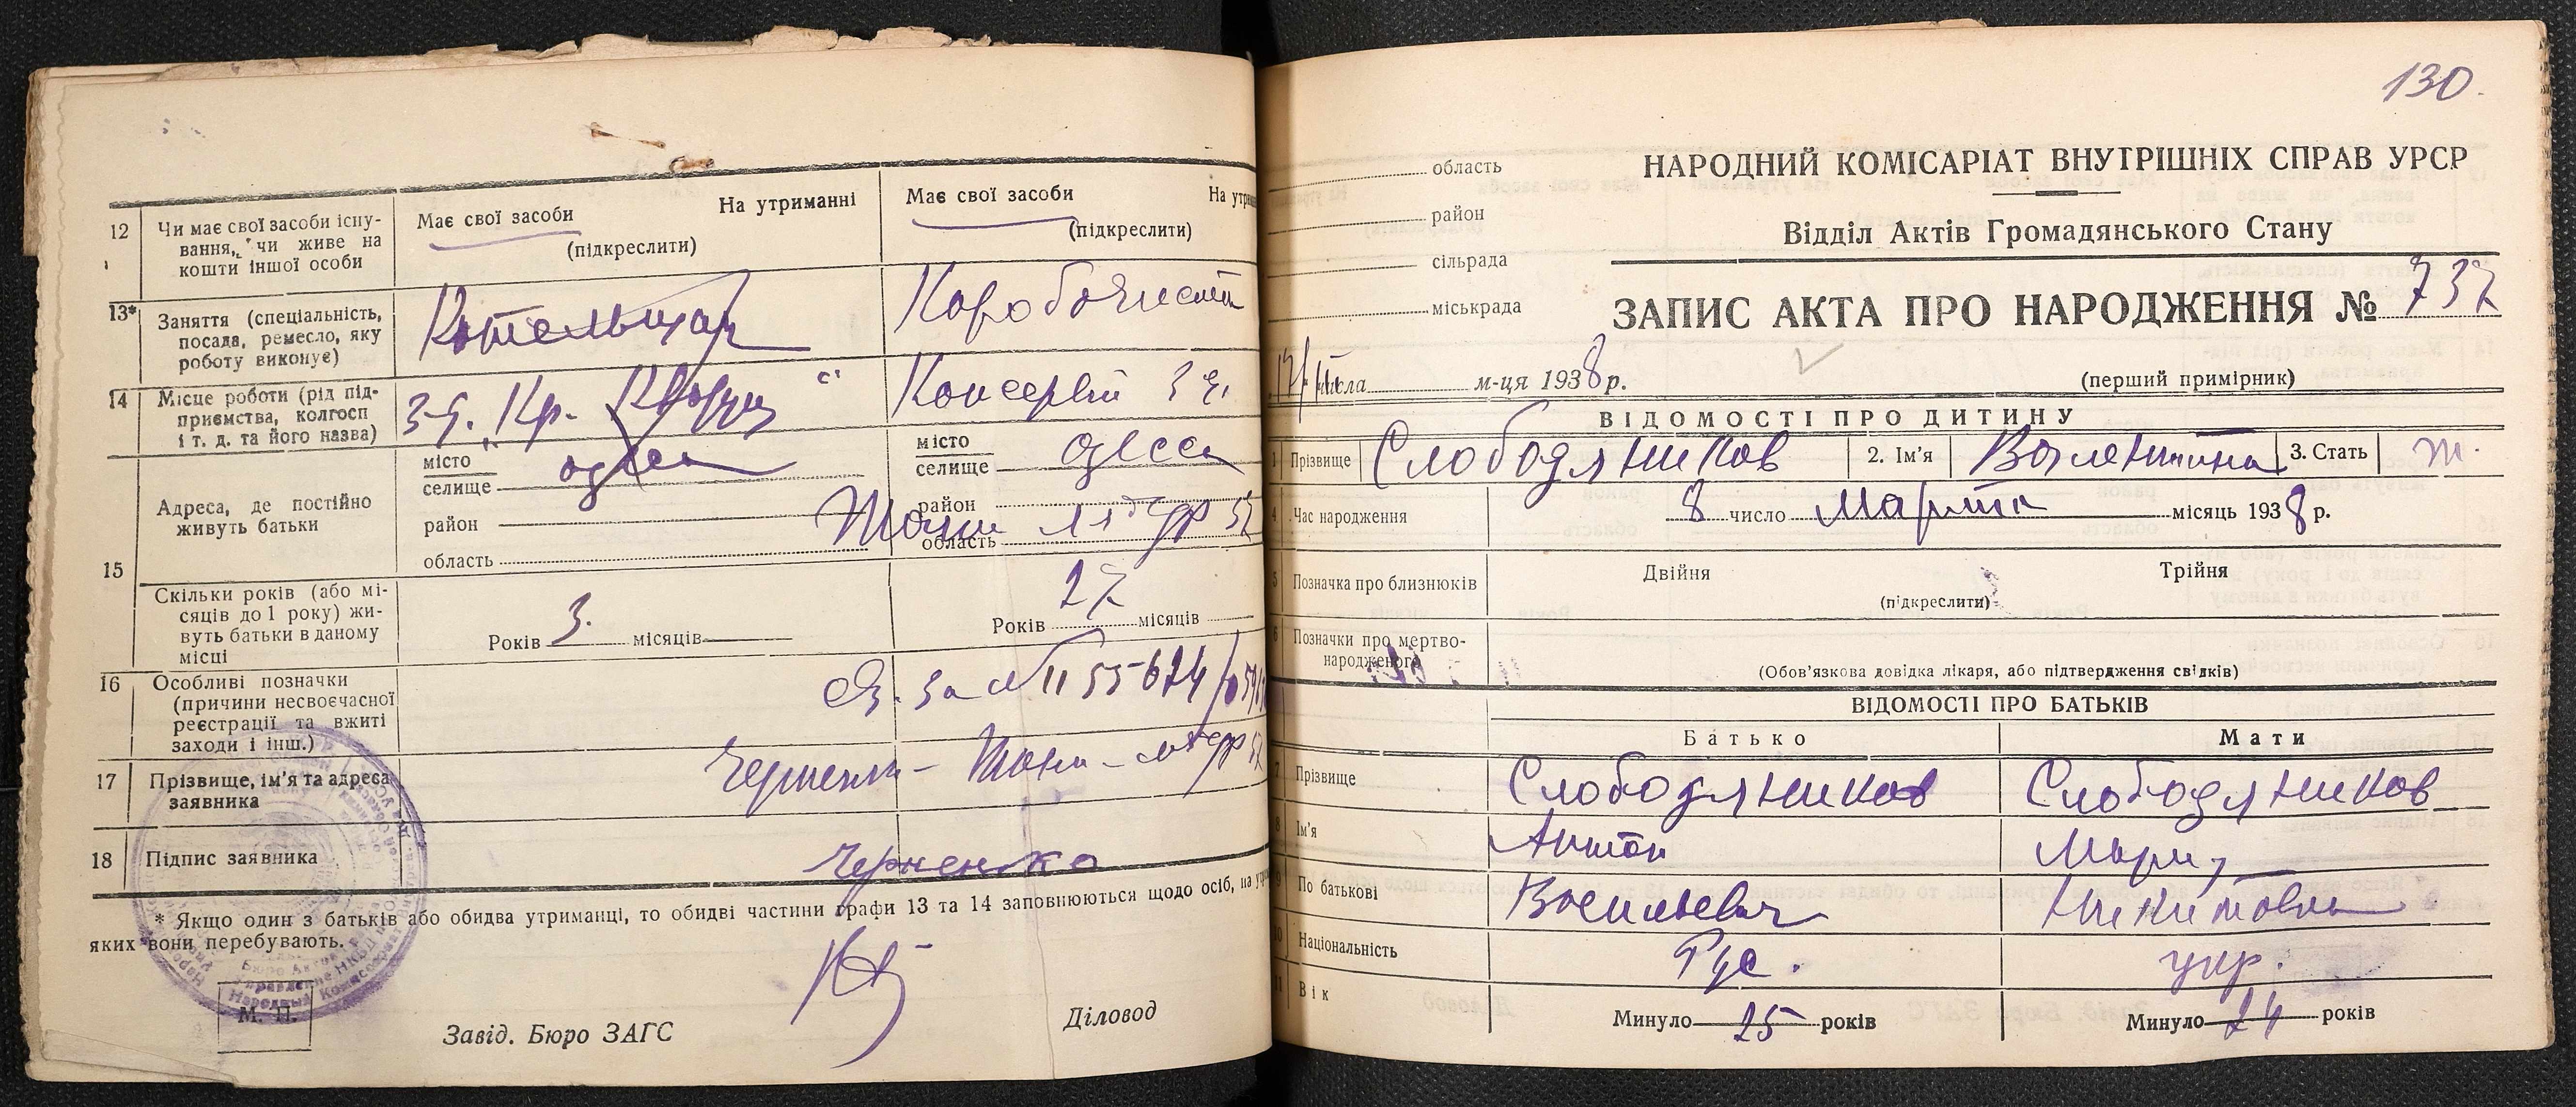 12 Чи має свої засоби існування, чи живе на кошти іншої особи
Має свої засоби На утриманні
(підкреслити)
Має свої засоби
(підкреслити)
13* Заняття (спеціальність, посада, ремесло, яку роботу виконує)
Котельщик
14 Місце роботи (рід підприємства, колгосп і т. д. та його назва)
15 Адреса, де постійно живуть батьки
місто
селище
Одесса
район
область
місто
селище
Одесса
район
область
Скільки років (або місяців до 1 року) живуть батьки в даному місці
Років 3. місяців
Років 27 місяців
16 Особливі позначки (причини несвоєчасної реєстрації та вжиті заходи і інш.)
17 Прізвище, ім'я та адреса заявника
18 Підпис заявника
Черненко
* Якщо один з батьків або обидва утриманці, то обидві частини графи 13 та 14 заповнюються щодо осіб, на
яких вони перебувають.
М. П.
Завід. Бюро ЗАГС
Діловод
130.
область
район
сільрада
міськрада
НАРОДНИЙ КОМІСАРІАТ ВНУТРІШНІХ СПРАВ УРСР
Відділ Актів Громадянського Стану
ЗАПИС АКТА ПРО НАРОДЖЕННЯ № 737
числа м-ця 1938 р.
(перший примірник)
ВІДОМОСТІ ПРО ДИТИНУ
1 Прізвище Слободяников 2. Ім'я Валентина 3. Стать ж.
4 Час народження 8 число Марта місяць 1938 р.
5 Позначка про близнюків Двійня Трійня
(підкреслити)
6 Позначки про мертвонародженого
(Обов'язкова довідка лікаря, або підтвердження свідків)
ВІДОМОСТІ ПРО БАТЬКІВ
Батько Мати
7 Прізвище Слободяников Слободяников
8 Ім'я Антон Мария
9 По батькові Васильевич Никитовна
10 Національність Рус. укр.
11 Вік Минуло 25 років Минуло 24 років